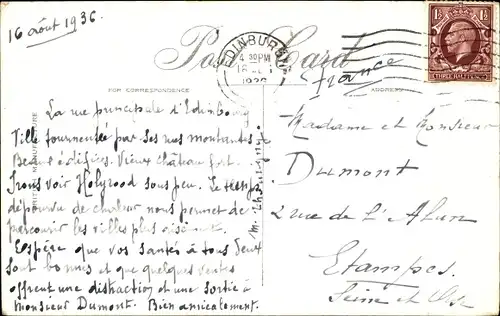 16 août 1936.
Post Card
EDINBURGH
4 30 PM
1936
1½
1½
THREE HALFPENCE
France
FOR CORRESPONDENCE
ADDRESS
BRITISH MANUFACTURE
La rue principale d'Edinbourg
Ville tourmentée par ses rues montantes
Beaux édifices. Vieux château fort.
Irons voir Holyrood sous peu. Le temps
dépourvu de chaleur nous permet de
parcourir les villes plus aisément.
Espère que vos santés à tous deux
sont bonnes et que quelques ventes
offrent une distraction et une sortie à
Monsieur Dumont. Bien amicalement.
Madame et Monsieur
Dumont
2 rue de l'
Etampes.
Seine et Oise